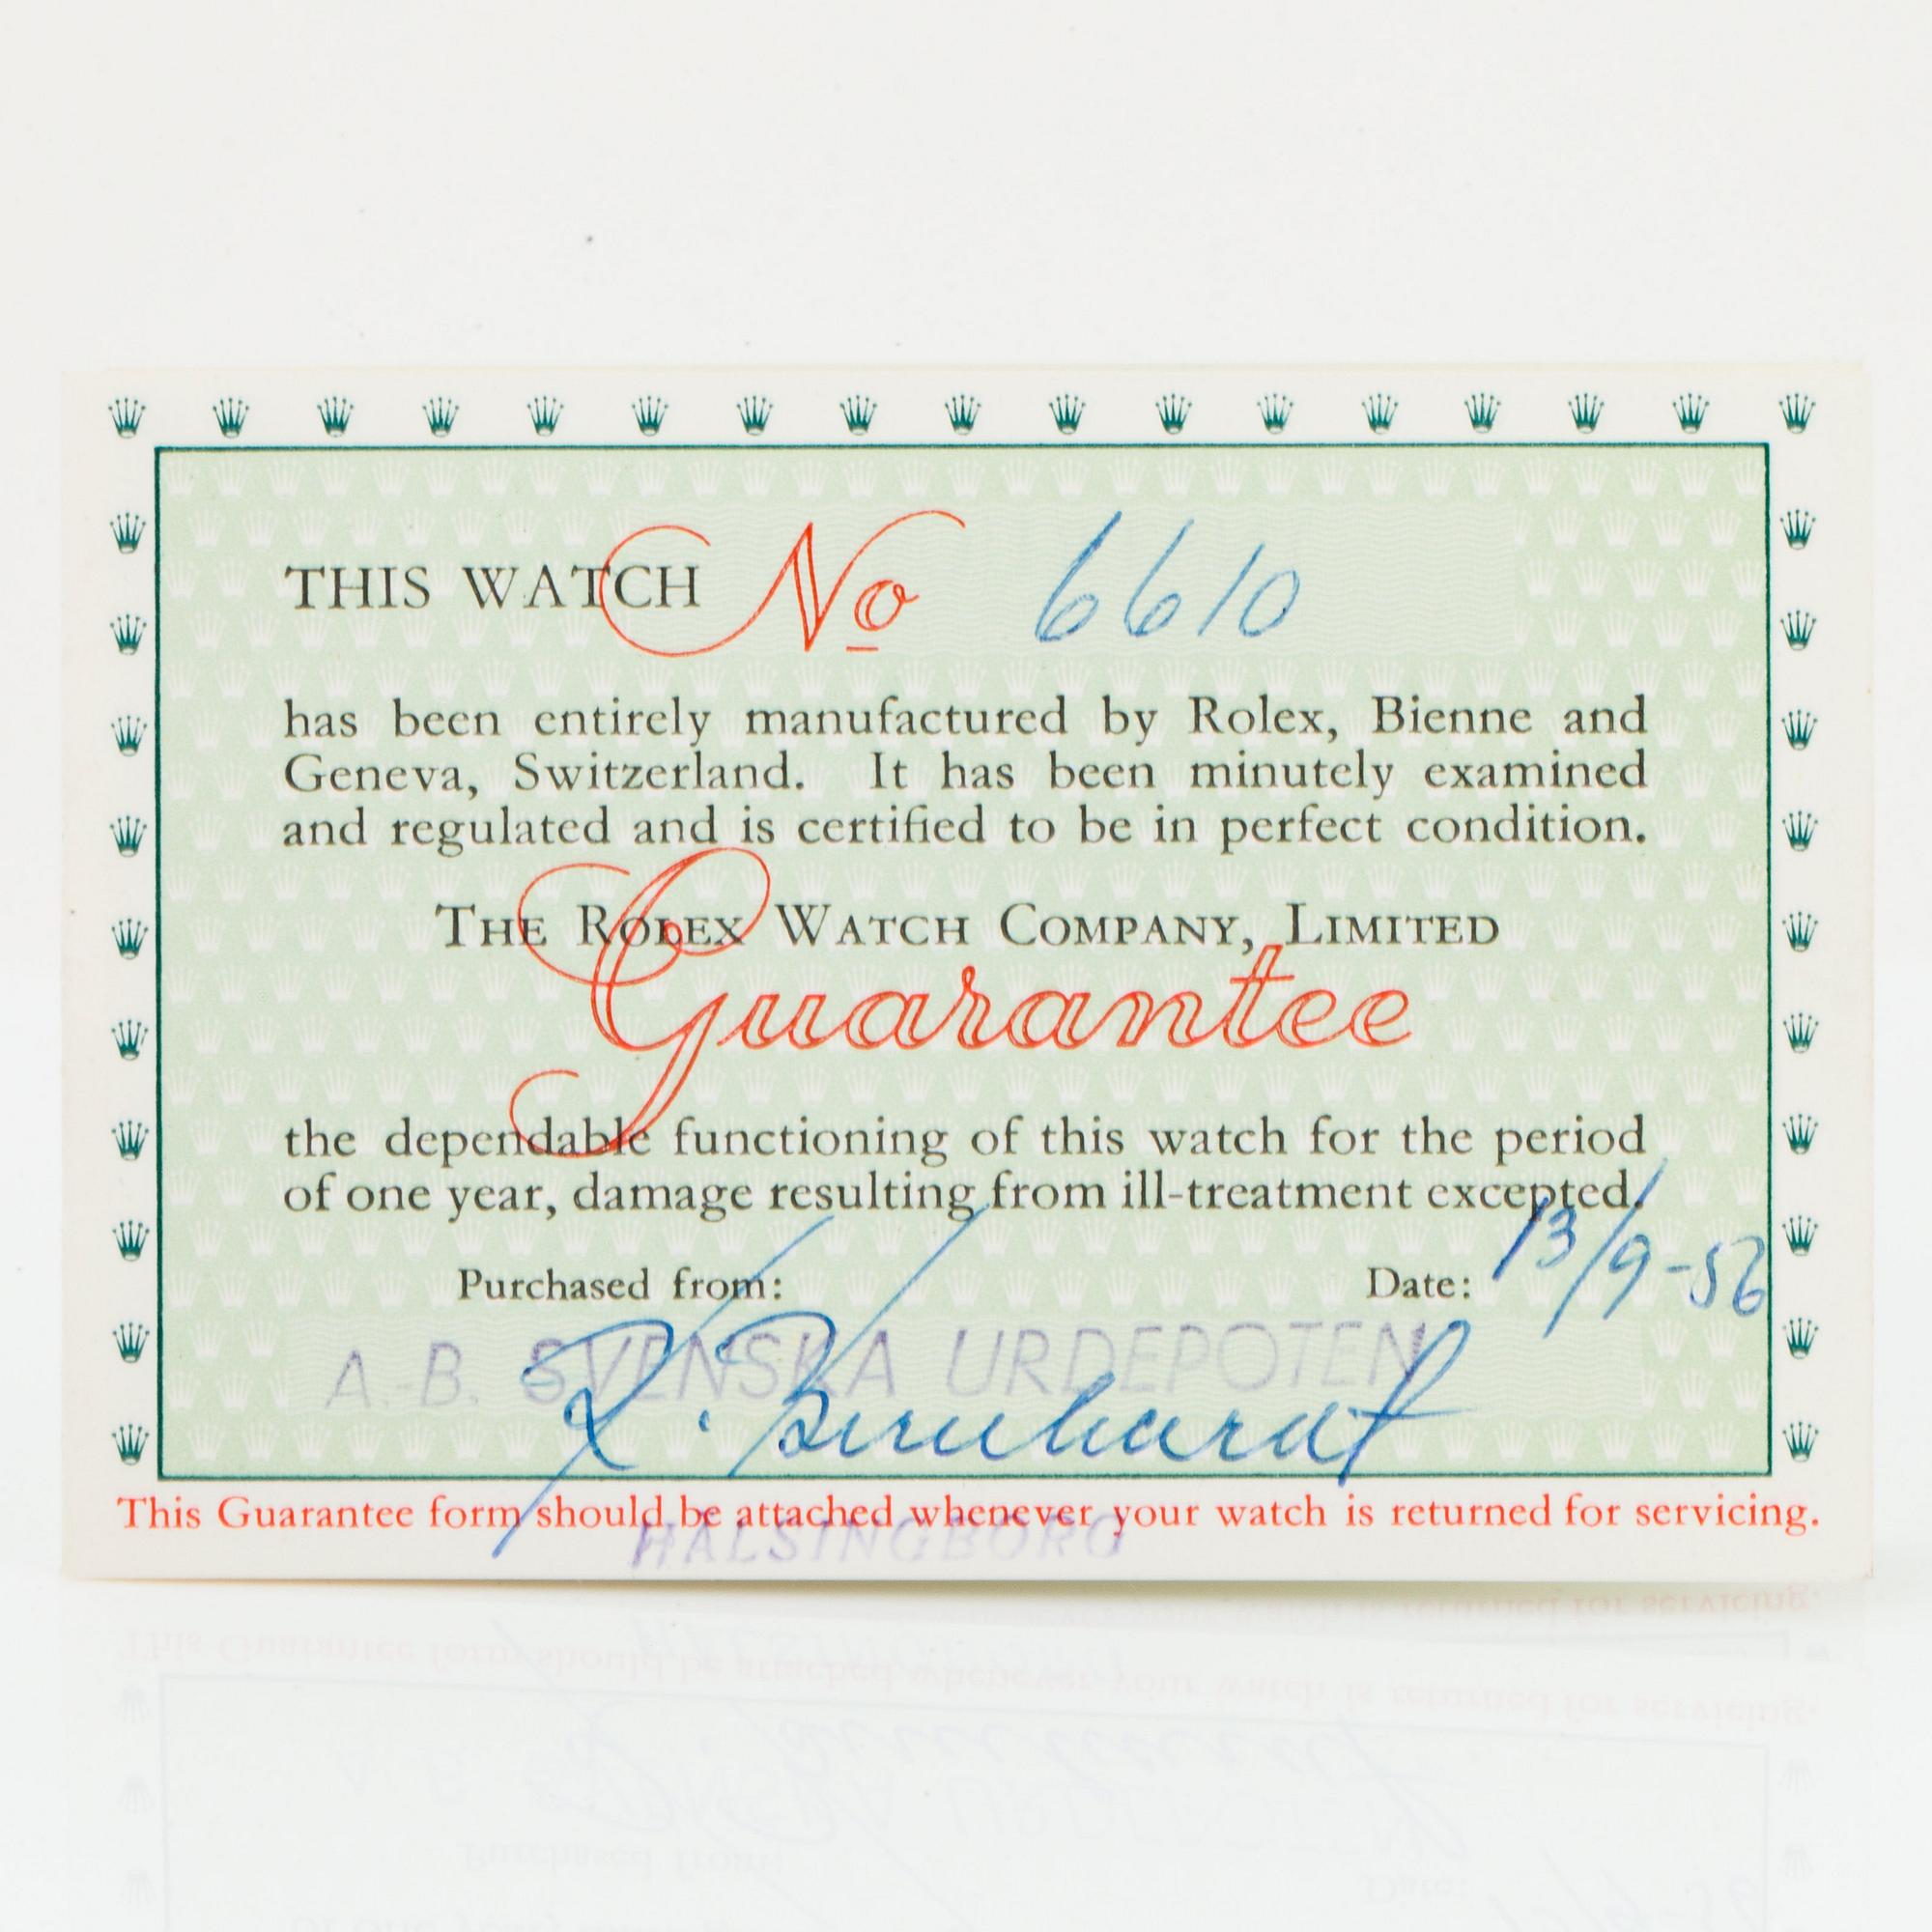 THIS WATCH No 6610
has been entirely manufactured by Rolex, Bienne and
Geneva, Switzerland. It has been minutely examined
and regulated and is certified to be in perfect condition.
THE ROLEX WATCH COMPANY, LIMITED
Guarantee
the dependable functioning of this watch for the period
of one year, damage resulting from ill-treatment excepted.
Purchased from: Date: 13/9-56
A.-B. SVENSKA URDEPOTEN
R. Bernhardt
This Guarantee form should be attached whenever your watch is returned for servicing.
HÄLSINGBORG